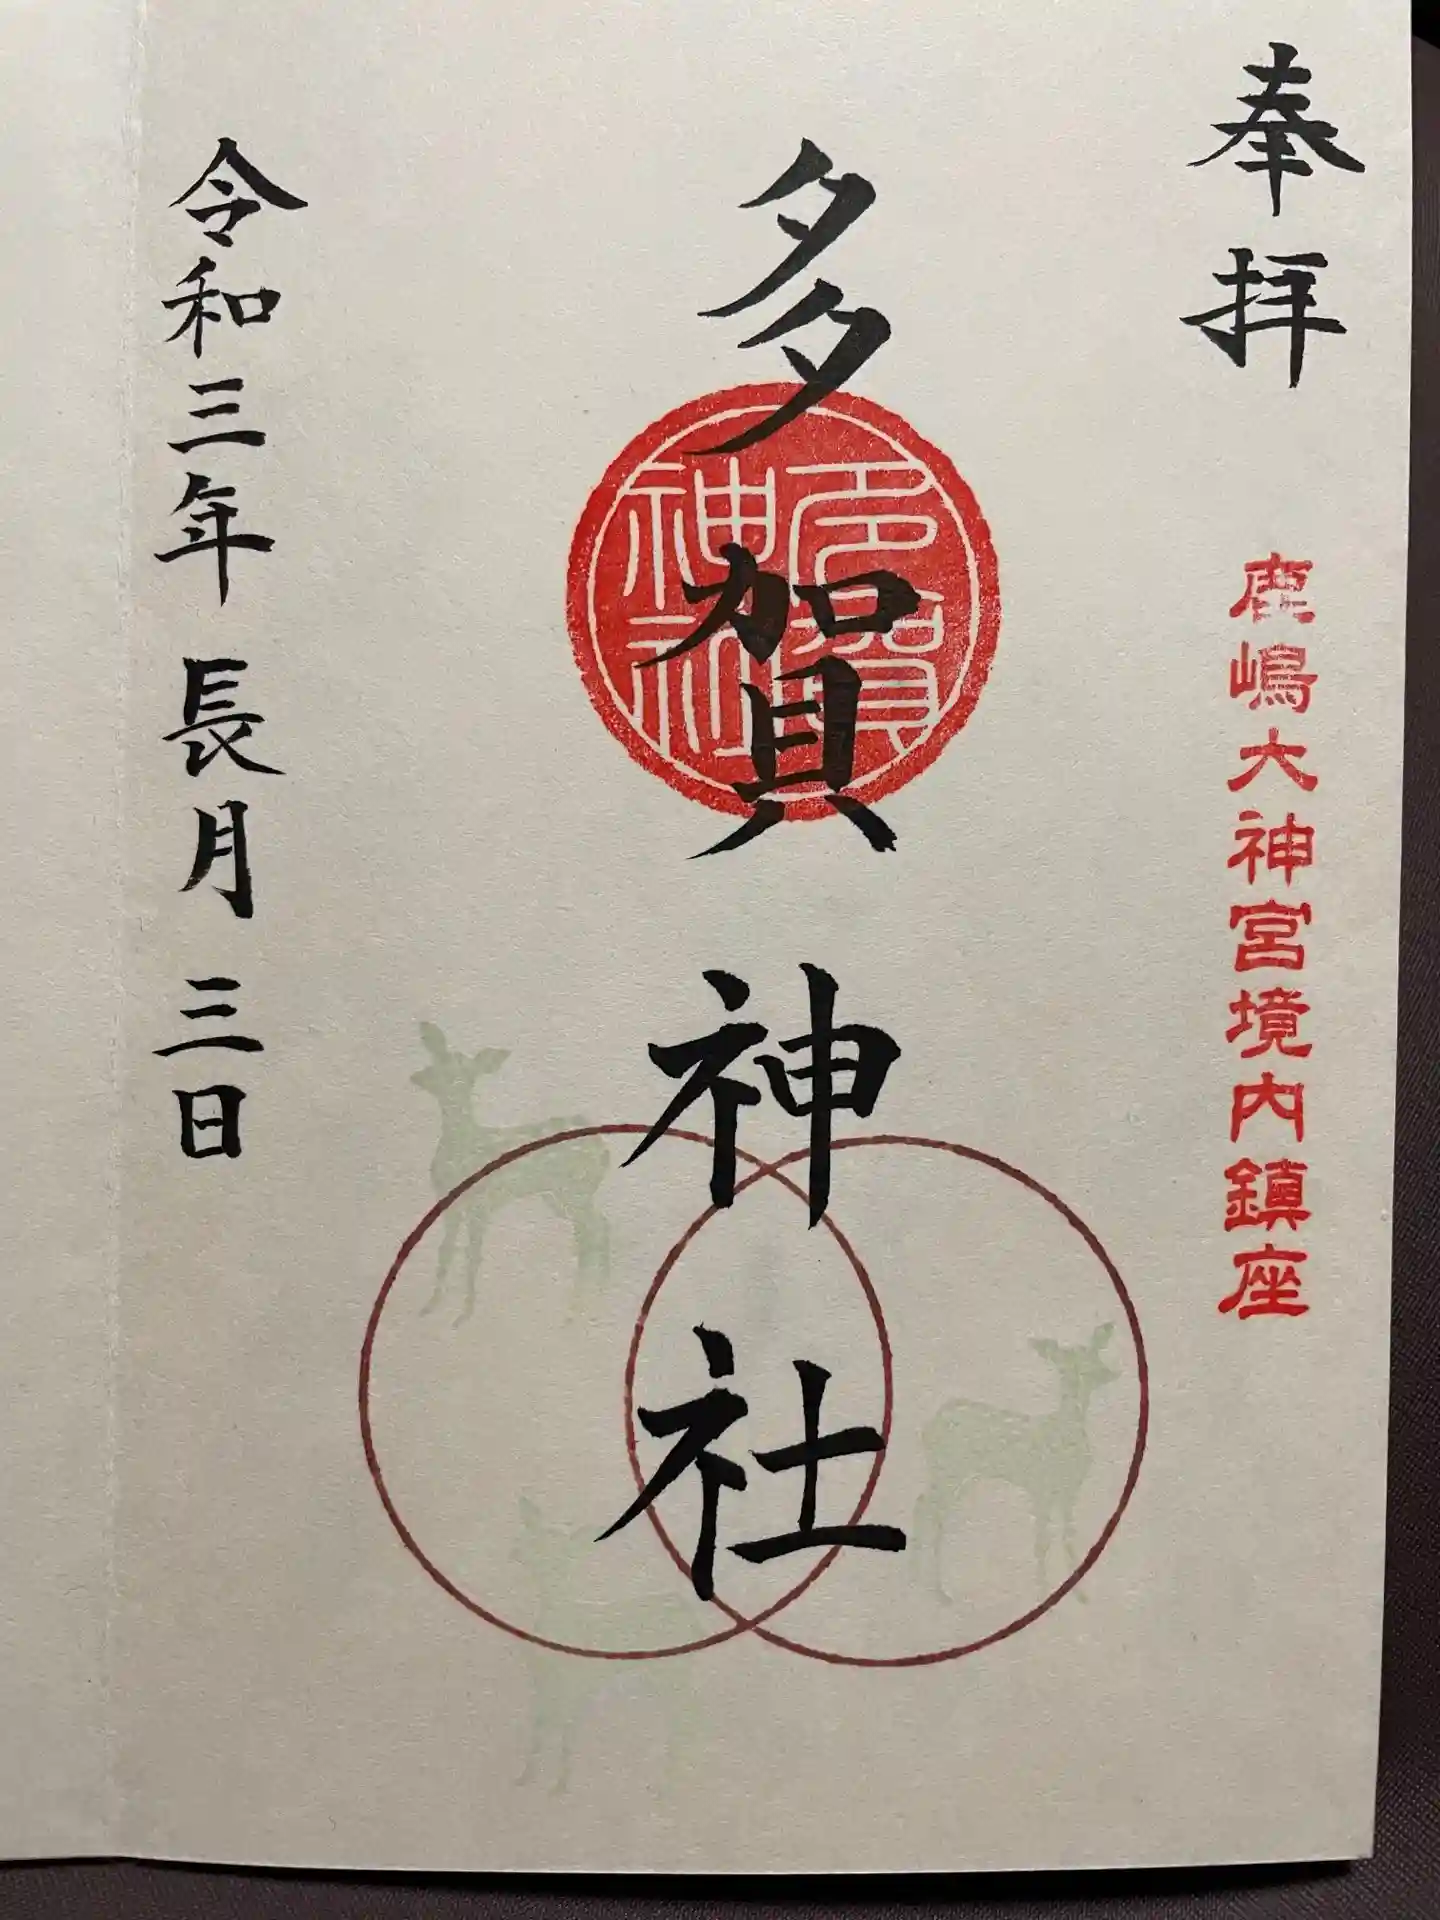 奉拝
鹿嶋大神宮境内鎮座
多賀神社
多賀
神社
令和三年長月三日